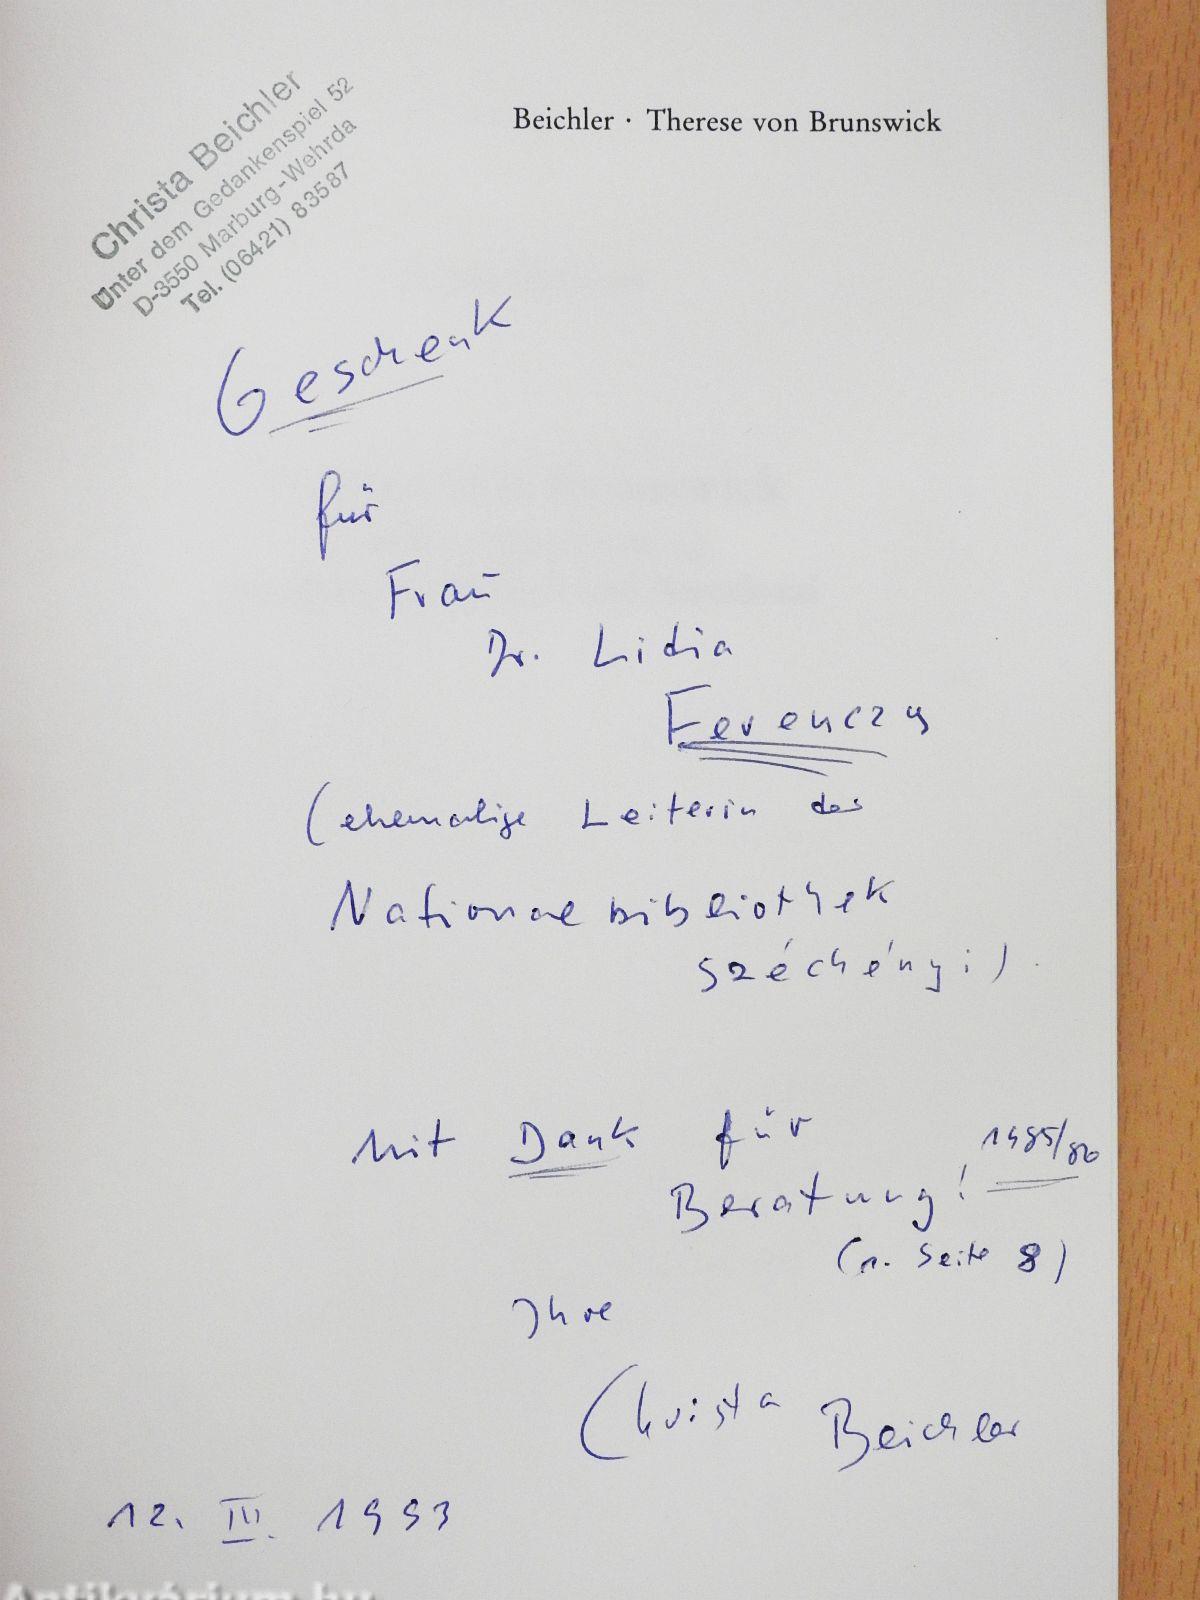 Christa Beichler
Unter dem Gedankenspiel 52
D-3550 Marburg-Wehrda
Tel. (06421) 83587
Beichler · Therese von Brunswick
Geschenk
für
Frau
Dr. Lidia
Ferenczy
(ehemalige Leiterin der
Nationalbibliothek
Széchényi)
Mit Dank für
Beratung! 1985/86
(s. Seite 8)
Ihre
Christa Beichler
12. III. 1993
Antikvárium.hu